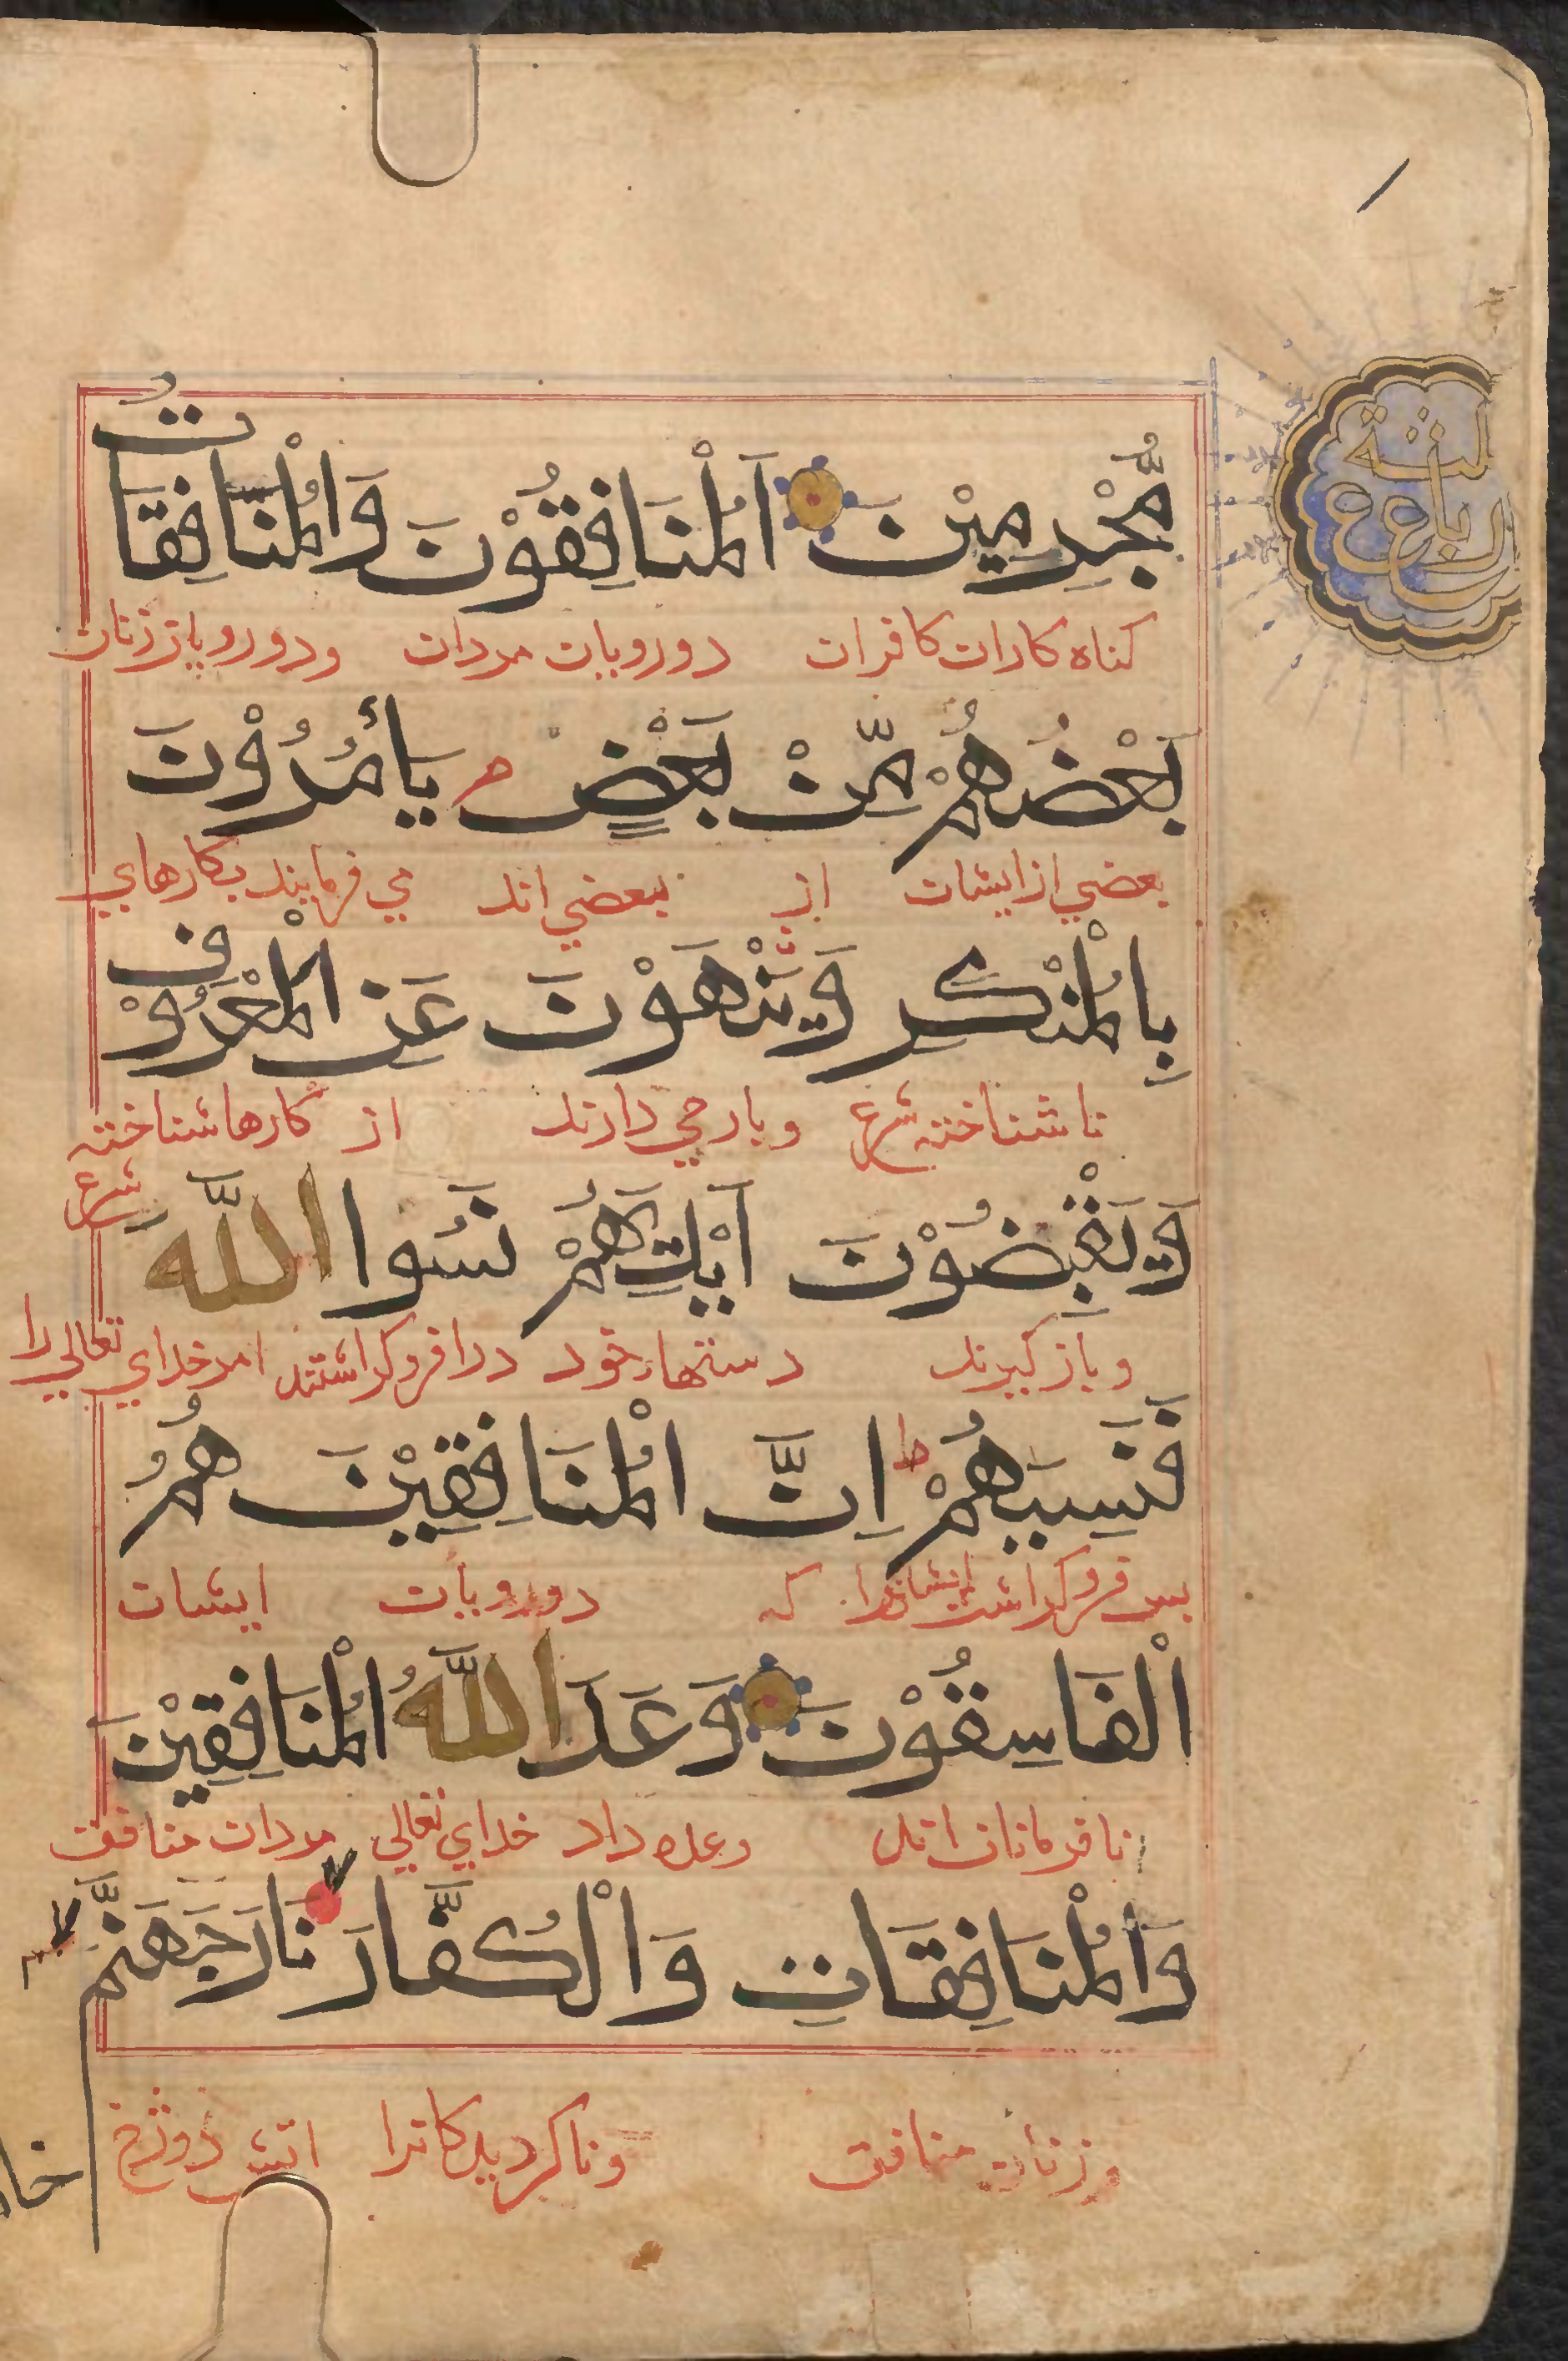 مُّجْرِمِيْنَ اَلْمُنَافِقُوْنَ وَالْمُنَافِقَاتُ
كناه كاران كافران دورويان مردان ودورويان زنان
بَعْضُهُمْ مِّنْ بَعْضٍ م يَأْمُرُوْنَ
بعضي از ايشان از ببعضي اند مي فرمايند بكارهاي
بِالْمُنْكَرِ وَيَنْهَوْنَ عَنِ الْمَعْرُوْفِ
ناشناخته شرع وباز مي دارند از كارها شناخته شرع
وَيَقْبِضُوْنَ اَيْدِيَهُمْ نَسُوا اللّٰهَ
وباز كيرند دستهاء خود درا فروكذاشتند امر خداي تعالي را
فَنَسِيَهُمْ ط اِنَّ الْمُنَافِقِيْنَ هُمُ
بس فروكذاشت ايشانرا كه دورويان ايشان
الْفَاسِقُوْنَ وَعَدَ اللّٰهُ الْمُنَافِقِيْنَ
نافرمانان اند وعده داد خداي تعالي مردان منافق
وَالْمُنَافِقَاتِ وَالْكُفَّارَ نَارَ جَهَنَّمَ
وزنان منافق وناكرويدكانرا اتش دوزخ